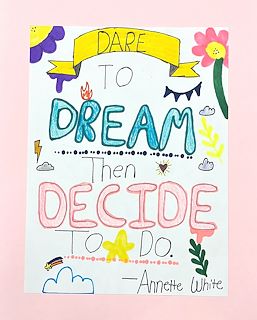 DARE
TO
DREAM
Then
DECIDE
TO DO.
-Annette White